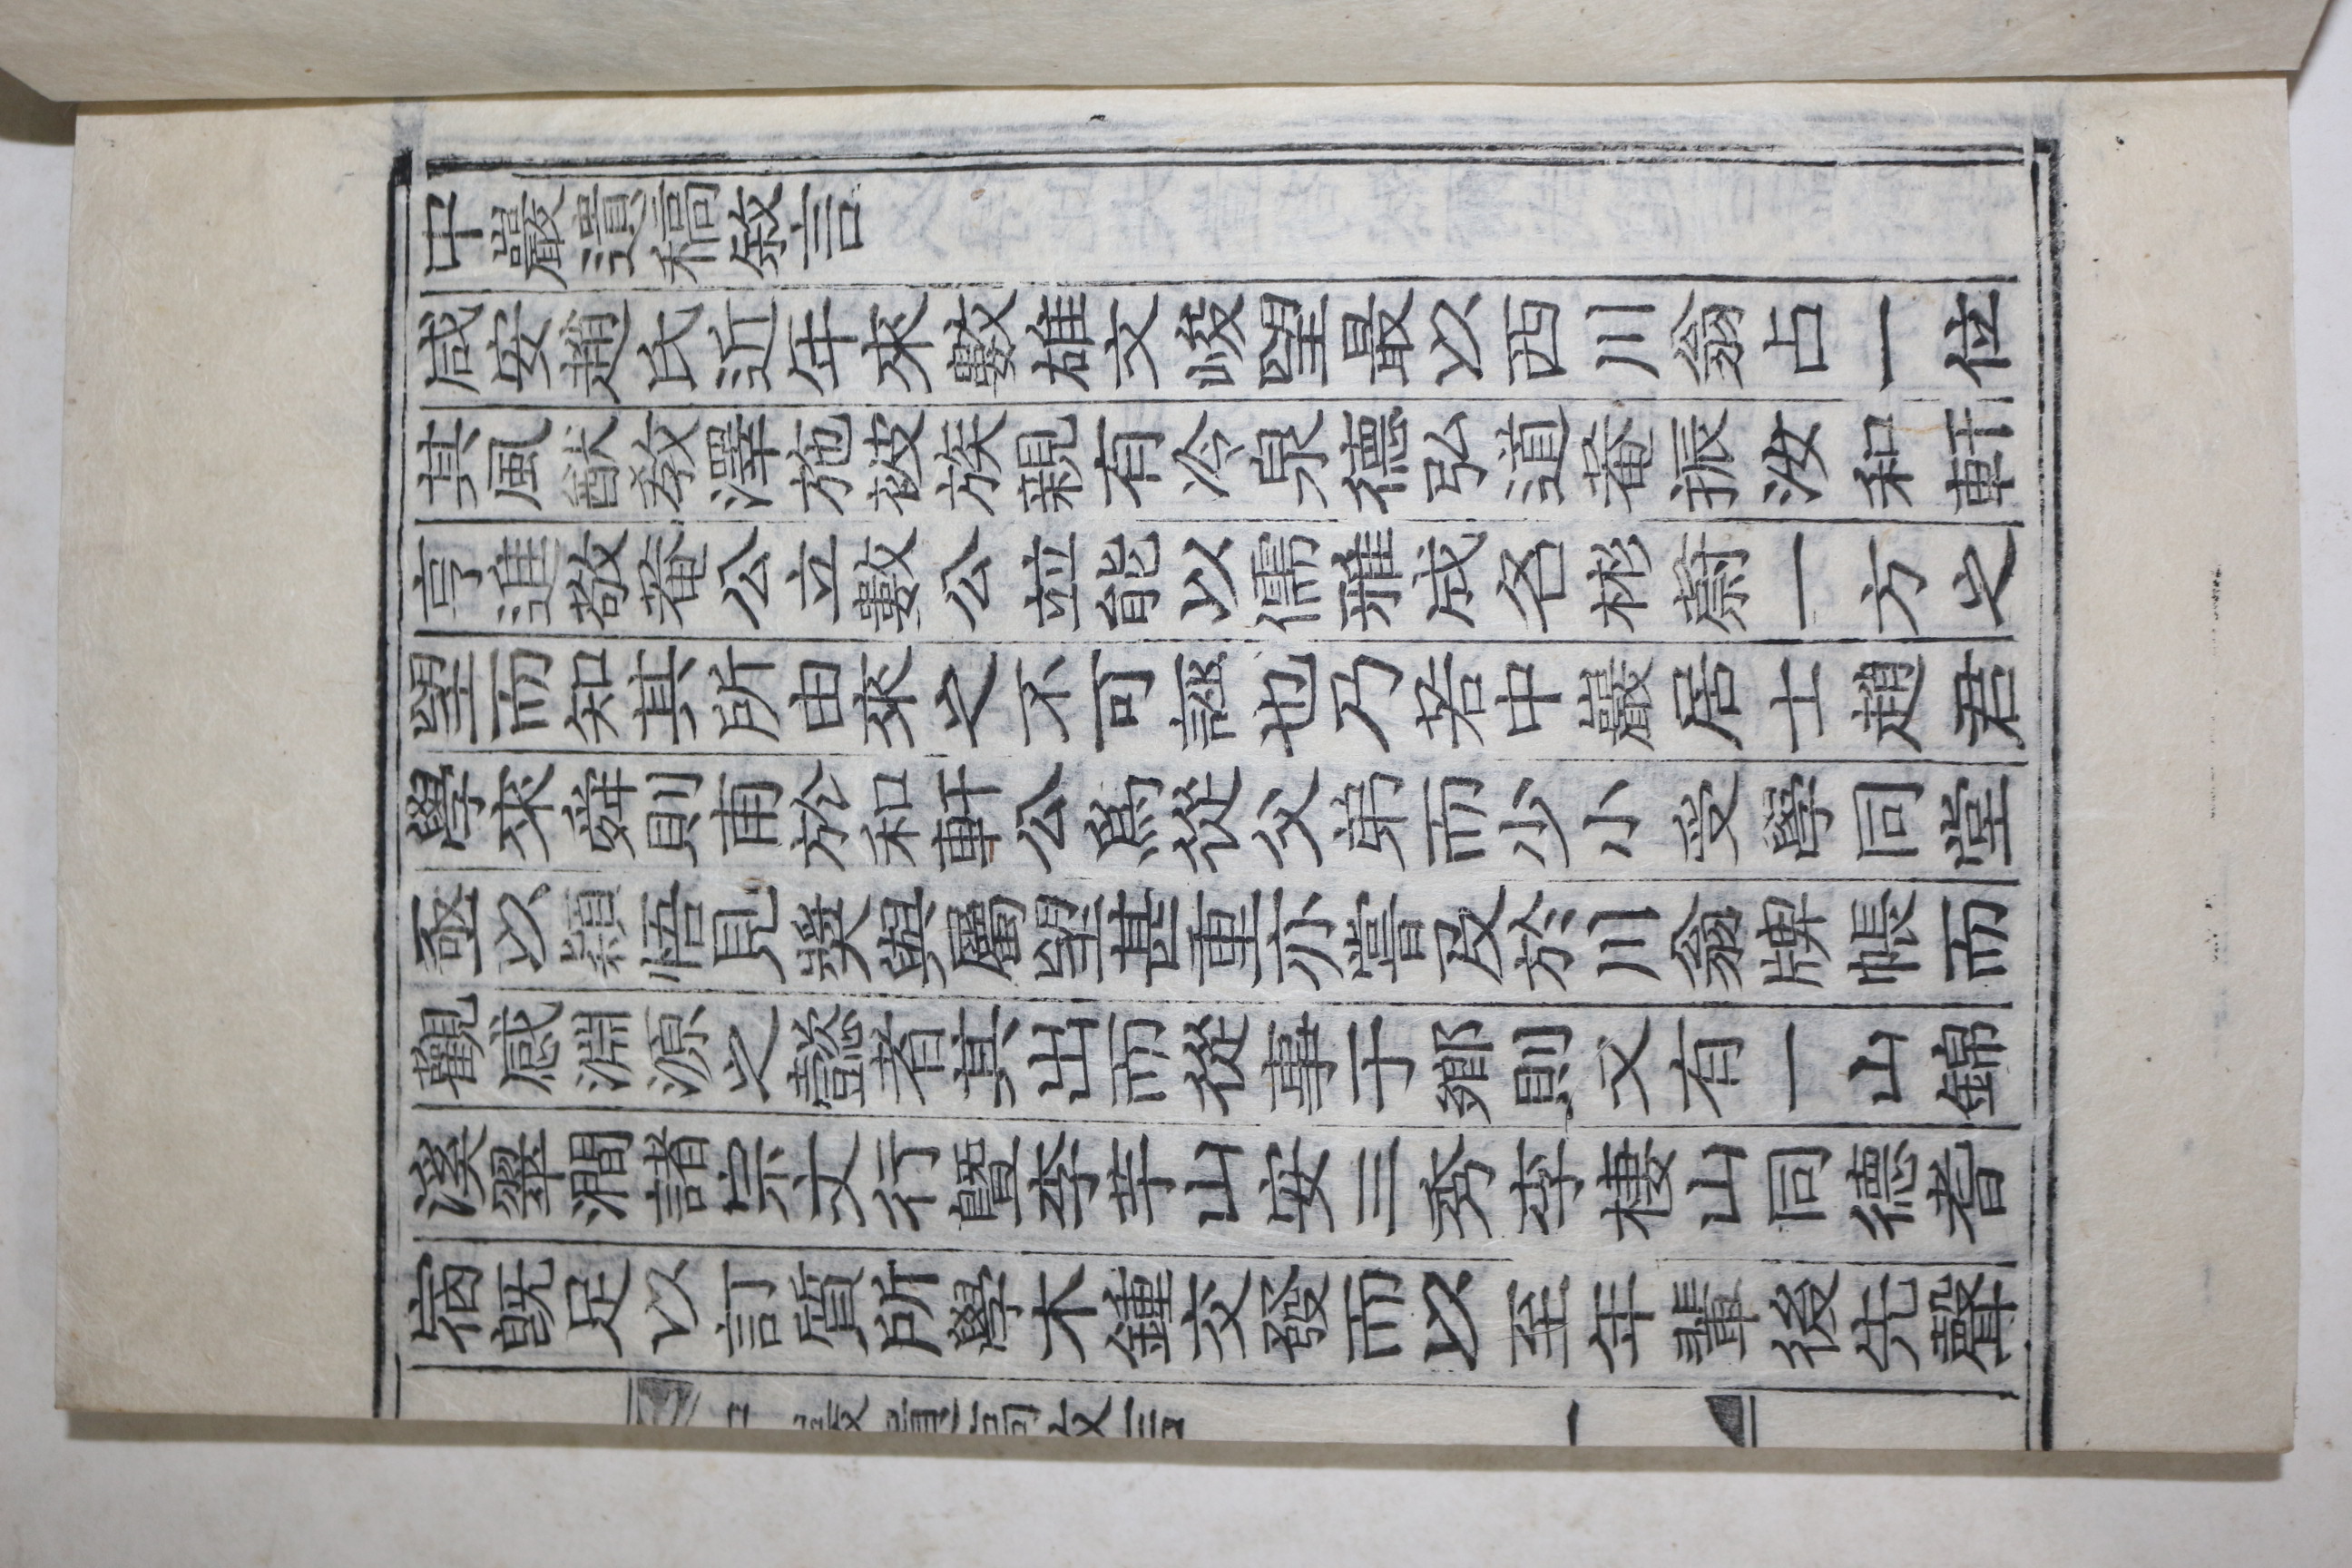 中巖遺稿敘言
咸安趙氏近年來數雄文峻望最以西川翁占一位
其風猷教澤施被族親有冷泉德弘道菴振汝和軒
亨進敬菴公立數公並能以儒雅成名彬蔚一方之
望而知其所由來之不可誣也乃若中巖居士趙君
學來舜則甫於和軒公爲從父弟而少小受學同堂
亟以穎悟見奬與屬望甚重亦嘗及於川翁牌帳而
觀感淵源之懿者其出而從事于鄉則又有一山錦
溪翠澗諸宗文行曁李芋山安三秀李棲山同德耆
宿旣足以訂質所學木鍾交發而以至年輩後先聲
中巖遺稿敘言
一